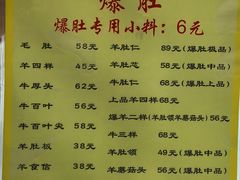 爆肚
爆肚专用小料：6元
毛肚 58元 羊肚仁 89元(爆肚极品)
羊四样 45元 羊肚芯 58元(爆肚中品)
牛厚头 62元 牛肚仁 68元(爆肚上品)
牛百叶 45元 上品羊四样 68元
牛百叶尖 58元 爆羊二样(羊肚领羊蘑菇头) 56元
羊肚板 38元 牛三样 68元
羊食信 38元 羊肚领 49元(爆肚中品)
羊蘑菇头 56元(爆肚中品)